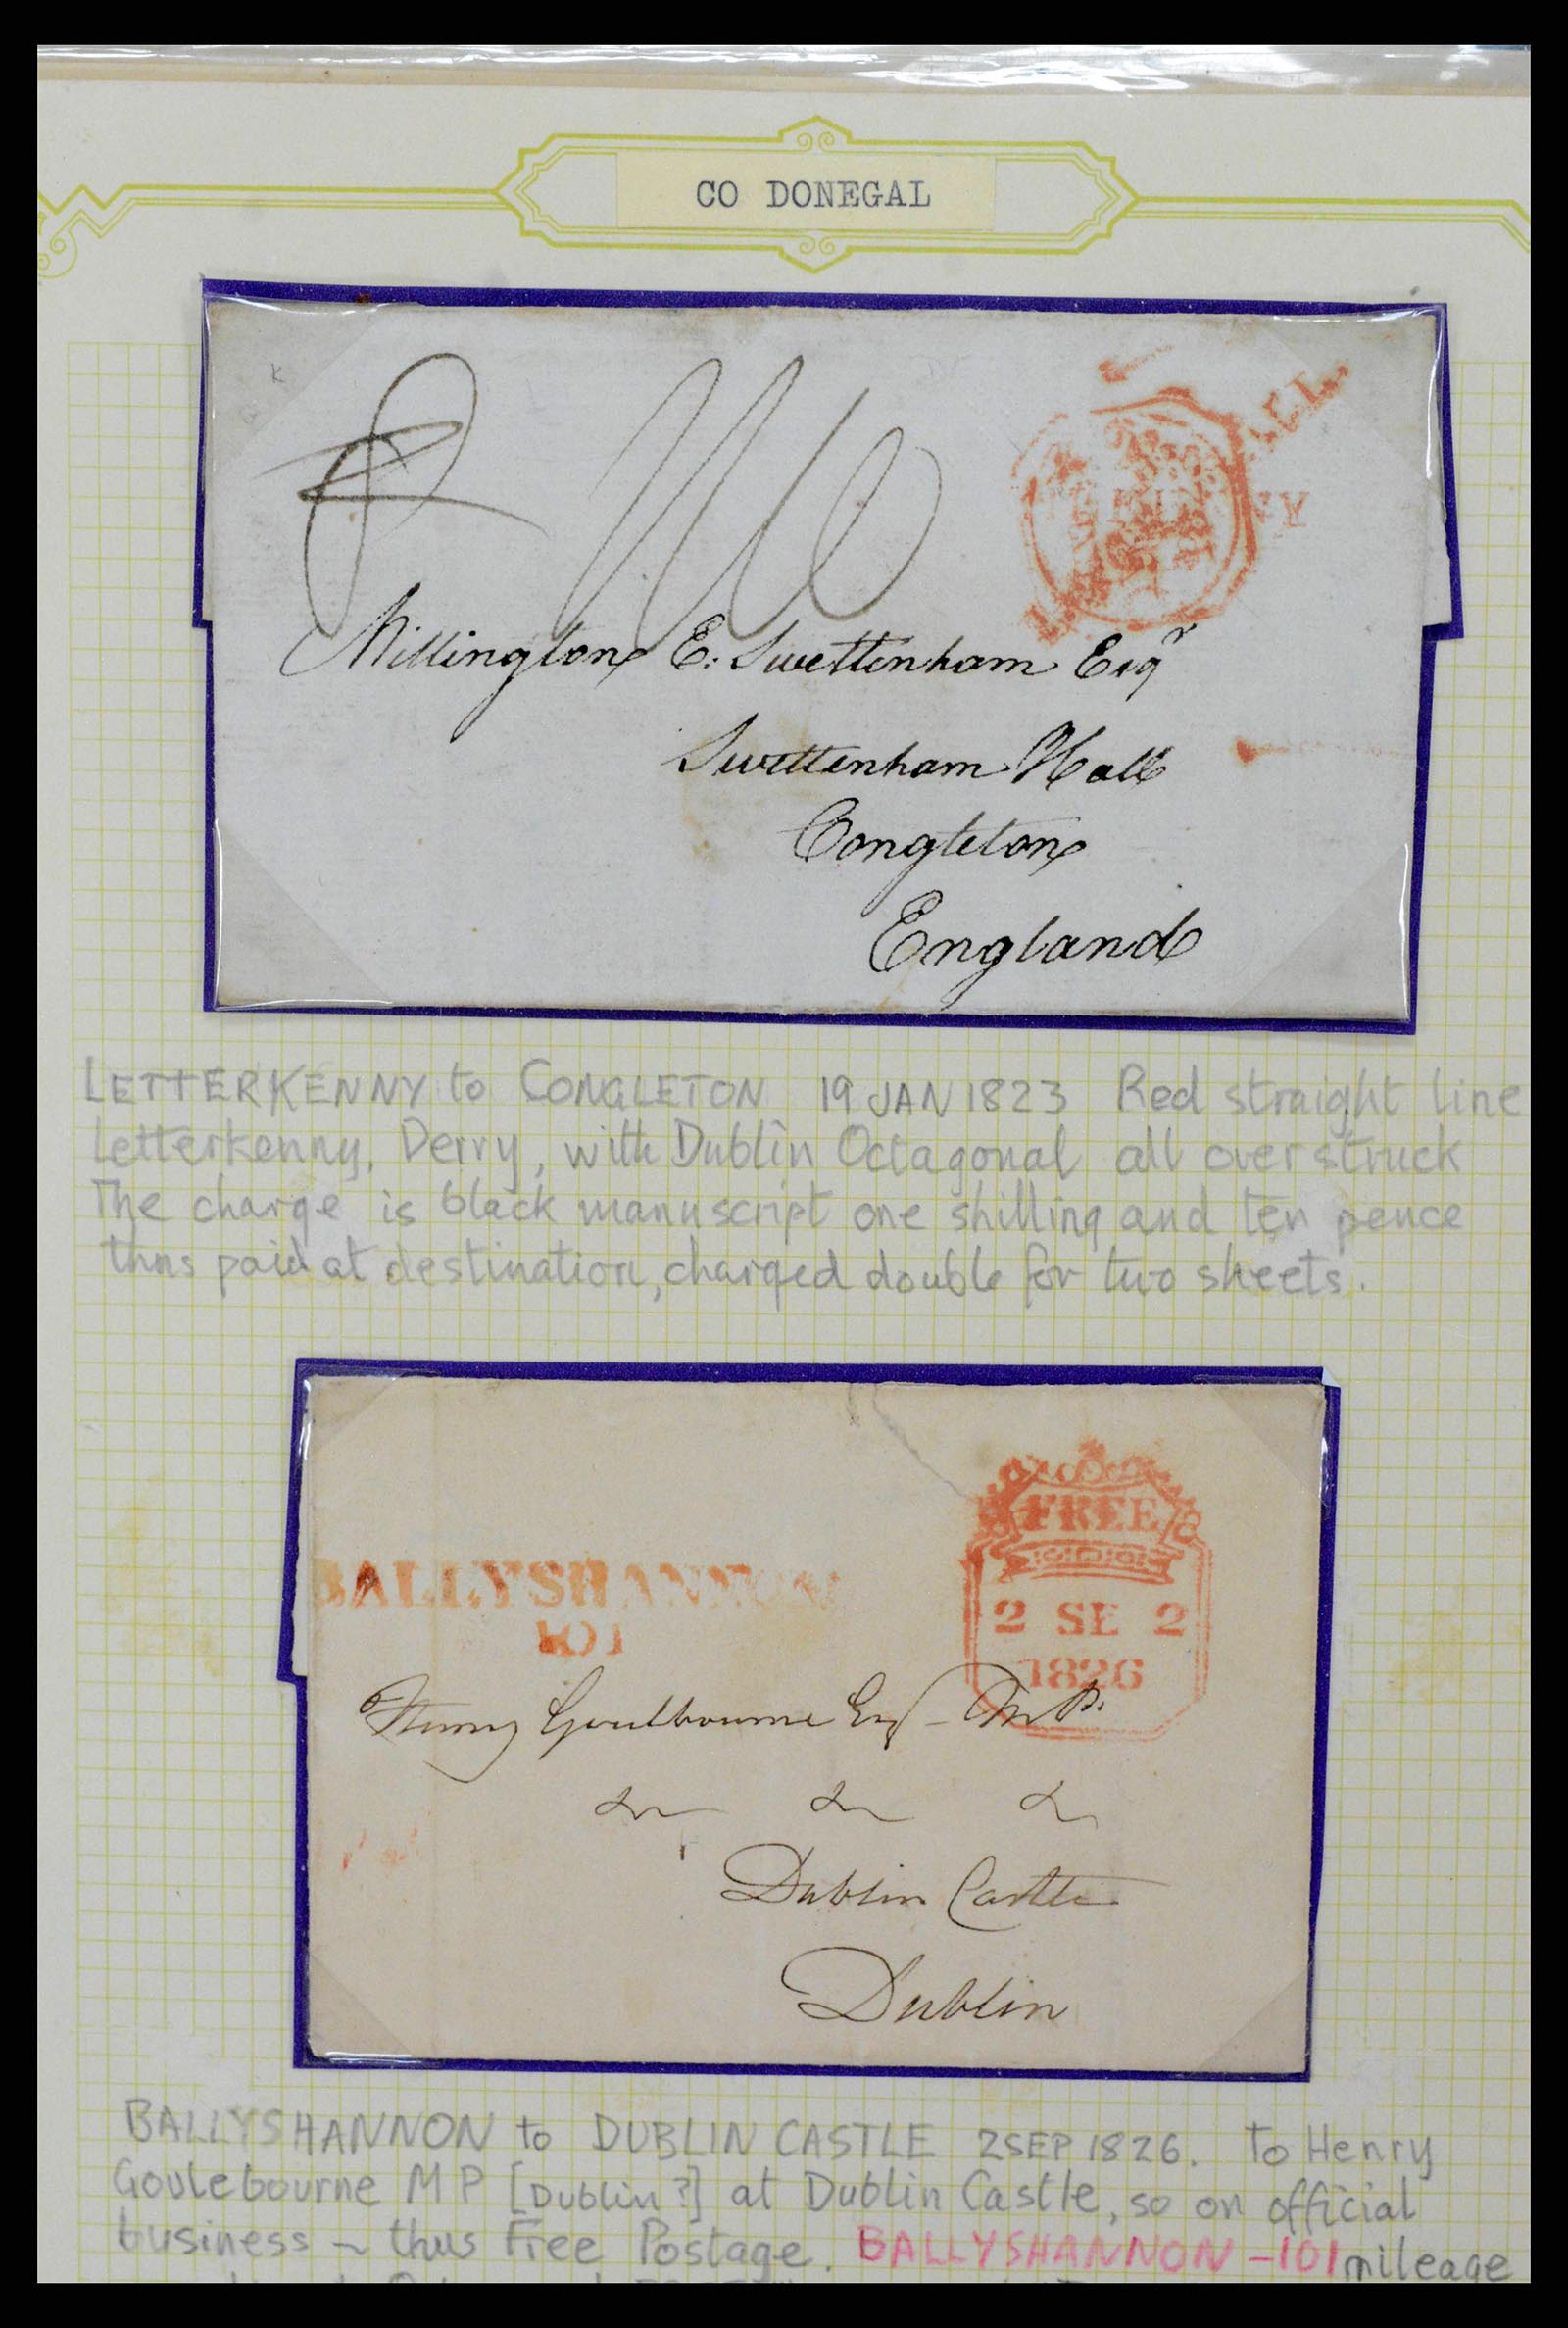 CO DONEGAL
Millington E: Swettenham Esqr
Swettenham Hall
Congleton
England
LETTERKENNY to CONGLETON 19 JAN 1823 Red straight line
Letterkenny, Derry, with Dublin Octagonal all over struck
The charge is black manuscript one shilling and ten pence
thus paid at destination, charged double for two sheets.
FREE
BALLYSHANNON
2 SE 2
101
1826
Henry Goulbourne Esq - M P.
Dublin Castle
Dublin
BALLYSHANNON to DUBLIN CASTLE 2SEP 1826. To Henry
Goulebourne MP [Dublin?] at Dublin Castle, so on official
business ~ thus Free Postage. BALLYSHANNON -101 mileage